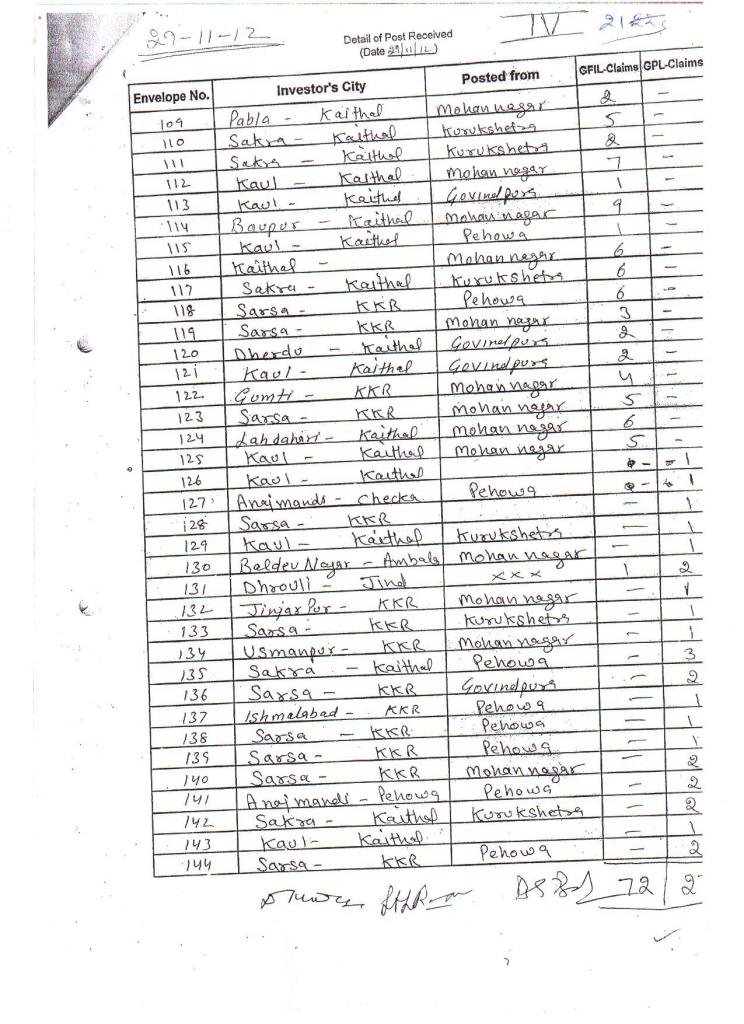 29-11-12
Detail of Post Received
(Date 29/11/12)
IV
Envelope No. Investor's City Posted from GFIL-Claims GPL-Claims
109 Pabla - Kaithal Mohan nagar 2 -
110 Sakra - Kaithal Kurukshetra 5 -
111 Sakra - Kaithal Kurukshetra 2 -
112 Kaul - Kaithal Mohan nagar 7 -
113 Kaul - Kaithal Govindpura 1 -
114 Baupur - Kaithal Mohan nagar 9 -
115 Kaul - Kaithal Pehowa 1 -
116 Kaithal - Mohan nagar 6 -
117 Sakra - Kaithal Kurukshetra 6 -
118 Sarsa - KKR Pehowa 6 -
119 Sarsa - KKR Mohan nagar 3 -
120 Dherdu - Kaithal Govindpura 2 -
121 Kaul - Kaithal Govindpura 2 -
122 Gumti - KKR Mohan nagar 4 -
123 Sarsa - KKR Mohan nagar 5 -
124 Lahdahari - Kaithal Mohan nagar 6 -
125 Kaul - Kaithal Mohan nagar 5 -
126 Kaul - Kaithal - 1
127 Anajmandi - Cheeka Pehowa - 1
128 Sarsa - KKR - 1
129 Kaul - Kaithal Kurukshetra - 1
130 Baldev Nagar - Ambala Mohan nagar - 1
131 Dhrouli - Jind xxx 1 2
132 Jinjarpur - KKR Mohan nagar - 1
133 Sarsa - KKR Kurukshetra - 1
134 Usmanpur - KKR Mohan nagar - 1
135 Sakra - Kaithal Pehowa - 3
136 Sarsa - KKR Govindpura - 2
137 Ishmalabad - KKR Pehowa - 1
138 Sarsa - KKR Pehowa - 1
139 Sarsa - KKR Pehowa - 1
140 Sarsa - KKR Mohan nagar - 2
141 Anajmandi - Pehowa Pehowa - 2
142 Sakra - Kaithal Kurukshetra - 2
143 Kaul - Kaithal - 1
144 Sarsa - KKR Pehowa - 2
72 2